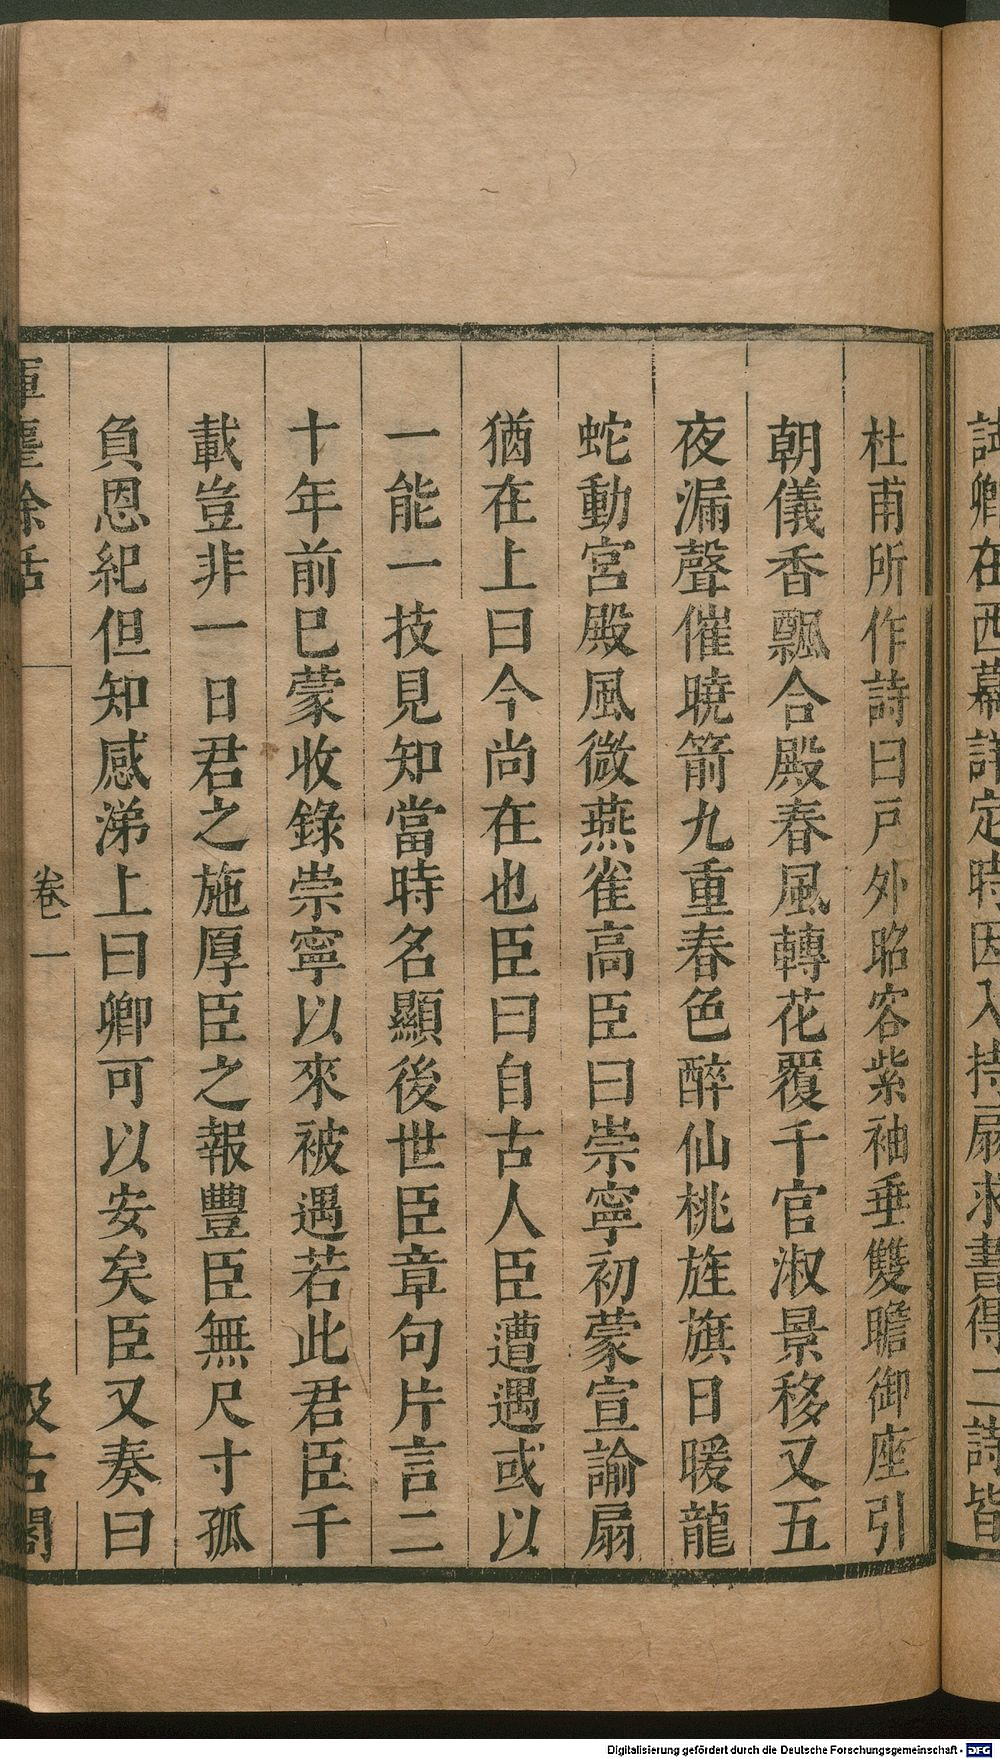 試卿在西幕詳定時因入持扇求書得二詩皆
杜甫所作詩曰戸外昭容紫袖垂雙瞻御座引
朝儀香飄合殿春風轉花覆千官淑景移又五
夜漏聲催曉箭九重春色醉仙桃旌旗日暖龍
蛇動宮殿風微燕雀高臣曰崇寧初蒙宣諭扇
猶在上曰今尚在也臣曰自古人臣遭遇或以
一能一技見知當時名顯後世臣章句片言二
十年前巳蒙收錄崇寧以來被遇若此君臣千
載豈非一日君之施厚臣之報豐臣無尺寸孤
負恩紀但知感涕上曰卿可以安矣臣又奏曰
揮麈餘話
卷一
汲古閣
Digitalisierung gefördert durch die Deutsche Forschungsgemeinschaft - DFG